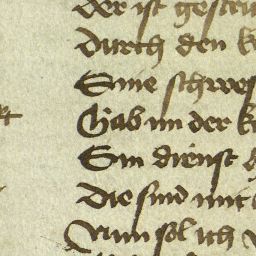 der ist gestri
durch den k
Sine schwes
Gab im der k
Sin dienst
Die sind mit
Nun sol ich